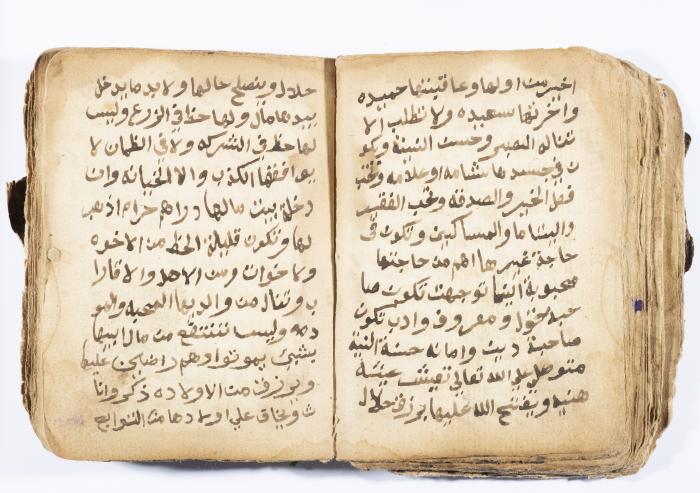 اخير من اولها وعاقبتها حميده
واخرتها سعيده ولا تطلب الا
تناله النصر وحسن النية ويكو
ن في جسدها شامه او علامه وتحب
فعل الخير والصدقه وتحب الفقير
واليتاما والمساكين وتكون في
حاجة غيرها اهم من حاجتها
محبوبة اينما توجهت تكون صا
حبة قول ومعروف وادب تكون
صاحبة دين وامانه حسنة النية
متوكلي علي الله تعالي تعيش عيشة
هنيه ويفتح الله عليها برزق حلال
حلال وينصلح حالها ولا بد ما يدخل
بيدها مال ولها حظ في الزرع وليس
لها حظ في الشركه ولا في الظمان لا
يوافقها الكذب ولا الخيانه وان
دخل بيت مالها دراهم حرام اذهب
لها وتكون قليلة الحظ من الاخوه
ولا خوات ومن الاهل والا قارا
ب وتنال من والديها المحبه والمو
ده وليس تنتفع من مال ابيها
بشيئ يموتوا وهم راضين عليها
وترزق من الاولاده ذكر وانا
ث ويخاف علي اولادها من التوابع